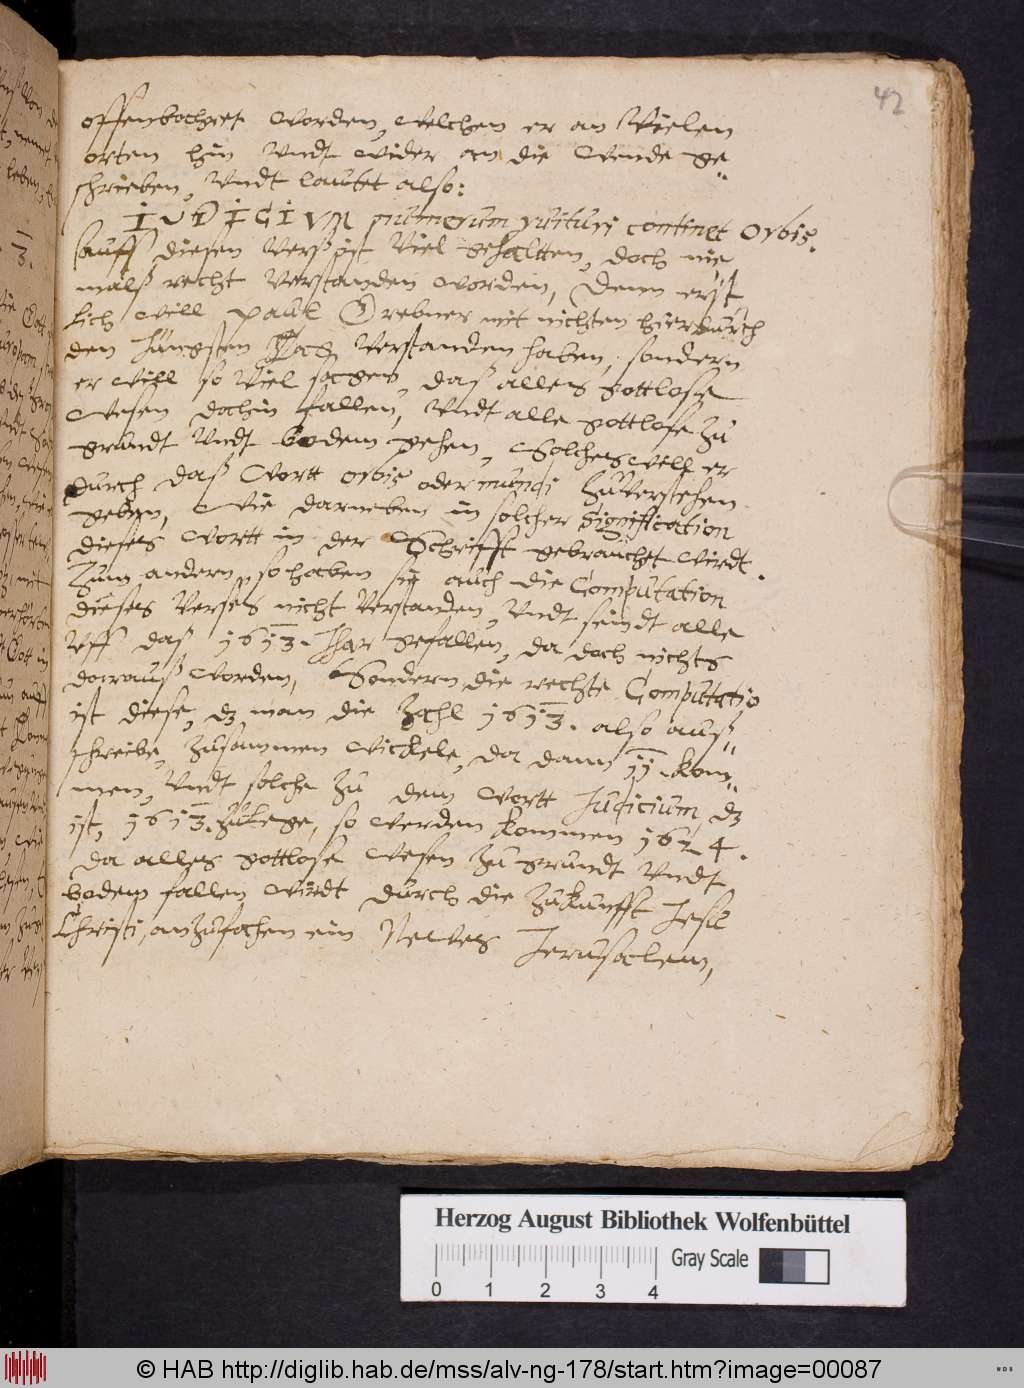 42
offenbahret worden, welchen er an Vielen
orten hin Vndt wider an die Wende ge„
schrieben, Vndt lautet also:
IUDICIVM numerum ruituri continet Orbis.
Auff diesen Verß ist Viel gehaltten, doch nie
malß recht Verstanden worden, Denn erst
lich will Paul Grebner mit nichten hierdurch
den Jüngsten Tag Verstanden haben, sondern
er will so Viel sagen, daß alles gottlose
Wesen dahin fallen, Vndt alle gottlose zu
grundt Vndt bodem gehen, Solches will er
durch daß Wortt orbis oder mundi zuverstehen
geben, Wie darneben in solcher Signification
dieses Wortt in der Schrifft gebrauchet wirdt.
Zum andern, so haben sie auch die Computation
dieses Verses nicht Verstanden, Vndt seindt alle
Vff daß 1613. Jhar gefallen, da doch nichts
darauß worden, Sondern die rechte Computatio
ist diese, dz man die Zahl 1613. also auß„
schreibe, zusammen wickele, da dann 11. kom„
men, Vndt solche zu dem Wortt Iudicium, dz
ist, 1613. zulege, so werden kommen 1624.
da alles gottlose Wesen zu grundt Vndt
bodem fallen wirdt durch die Zukunfft Jesu
Christi, anzufahen ein Newes Jerusalem,
Herzog August Bibliothek Wolfenbüttel
0 1 2 3 4
Gray Scale
© HAB http://diglib.hab.de/mss/alv-ng-178/start.htm?image=00087